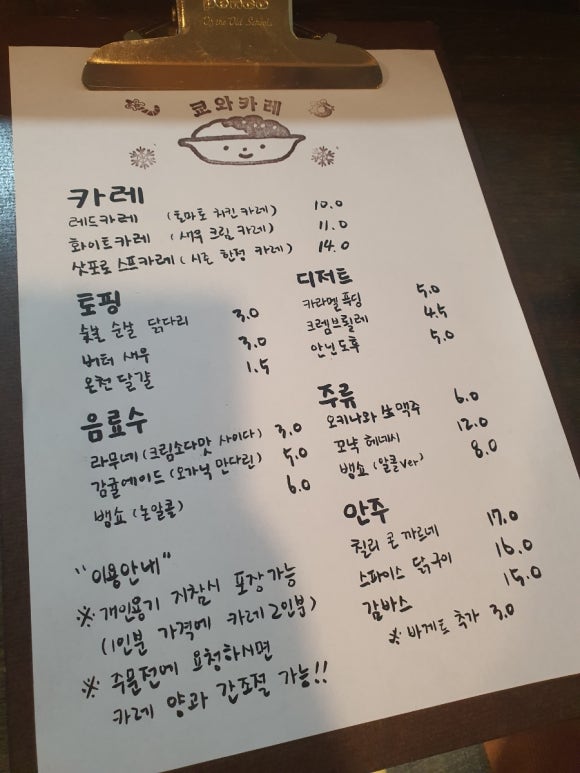 PENCO
Of the Old School
쿄와카레
카레
레드카레 (토마토 치킨 카레) 10.0
화이트카레 (새우 크림 카레) 11.0
삿포로 스프카레 (시즌 한정 카레) 14.0
토핑
숯불 순살 닭다리 3.0
버터 새우 3.0
온천 달걀 1.5
디저트
카라멜 푸딩 5.0
크렘브륄레 4.5
안닌도후 5.0
음료수
라무네 (크림소다맛 사이다) 3.0
감귤에이드 (오가닉 만다린) 5.0
뱅쇼 (논알콜) 6.0
주류
오키나와 生맥주 6.0
꼬냑 헤네시 12.0
뱅쇼 (알콜ver) 8.0
안주
칠리 콘 까르네 17.0
스파이스 닭구이 16.0
감바스 15.0
※ 바게트 추가 3.0
"이용안내"
※ 개인용기 지참시 포장가능
(1인분 가격에 카레 2인분)
※ 주문전에 요청하시면
카레 양과 간조절 가능!!